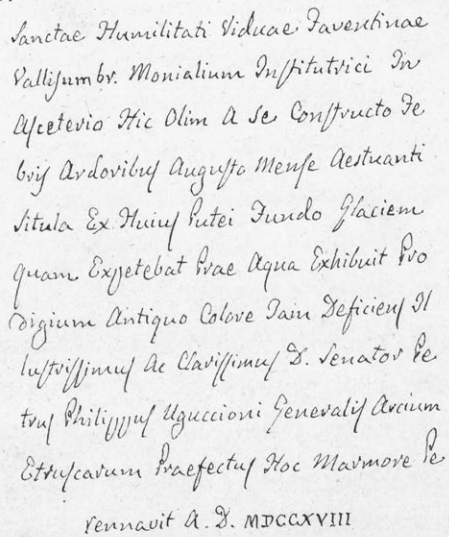 Sanctae Humilitati Viduae Faventinae
Vallisumbr. Monialium Institutrici In
Asceterio Hic Olim A Se Constructo Fe
bris Ardoribus Augusto Mense Aestuanti
Situla Ex Huius Putei Fundo Glaciem
quam Expetebat Prae Aqua Exhibuit Pro
digium Antiquo Colore Iam Deficiens Il
lustrissimus Ac Clarissimus D. Senator Pe
trus Philippus Uguccioni Generalis Arcium
Etruscarum Praefectus Hoc Marmore Pe
rennavit A. D. MDCCXVIII